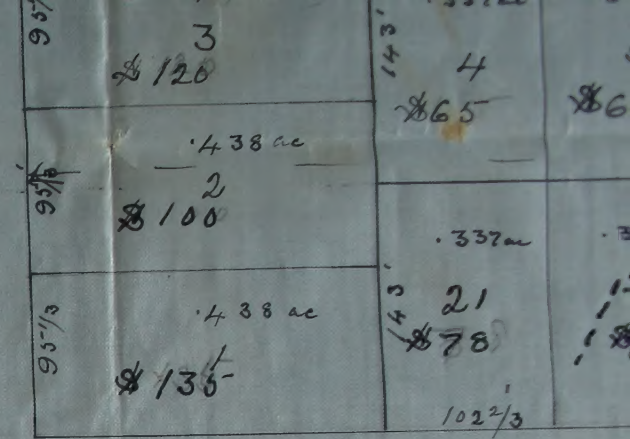 95⅓
3
$120
143'
4
$65
$6
.438 ac
95⅓'
2
$100
.337 ac
95⅓
.438 ac
1
$135
143'
21
$78
102⅔'